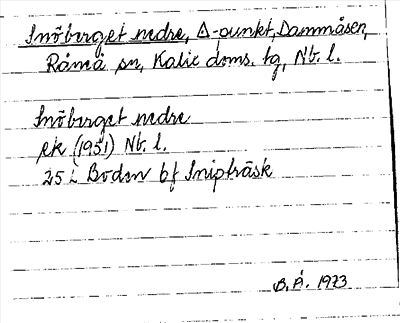 Snöberget nedre, Δ-punkt, Dammåsen,
Råneå sn, Kalix doms. tg, Nb. l.
Snöberget nedre
ek (1951) Nb. l.
25 i Boden bf Snipträsk
B. Å. 1973